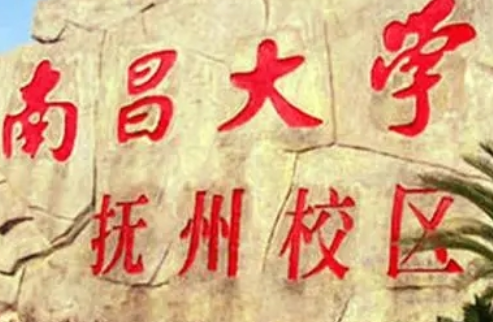 南昌大学
抚州校区